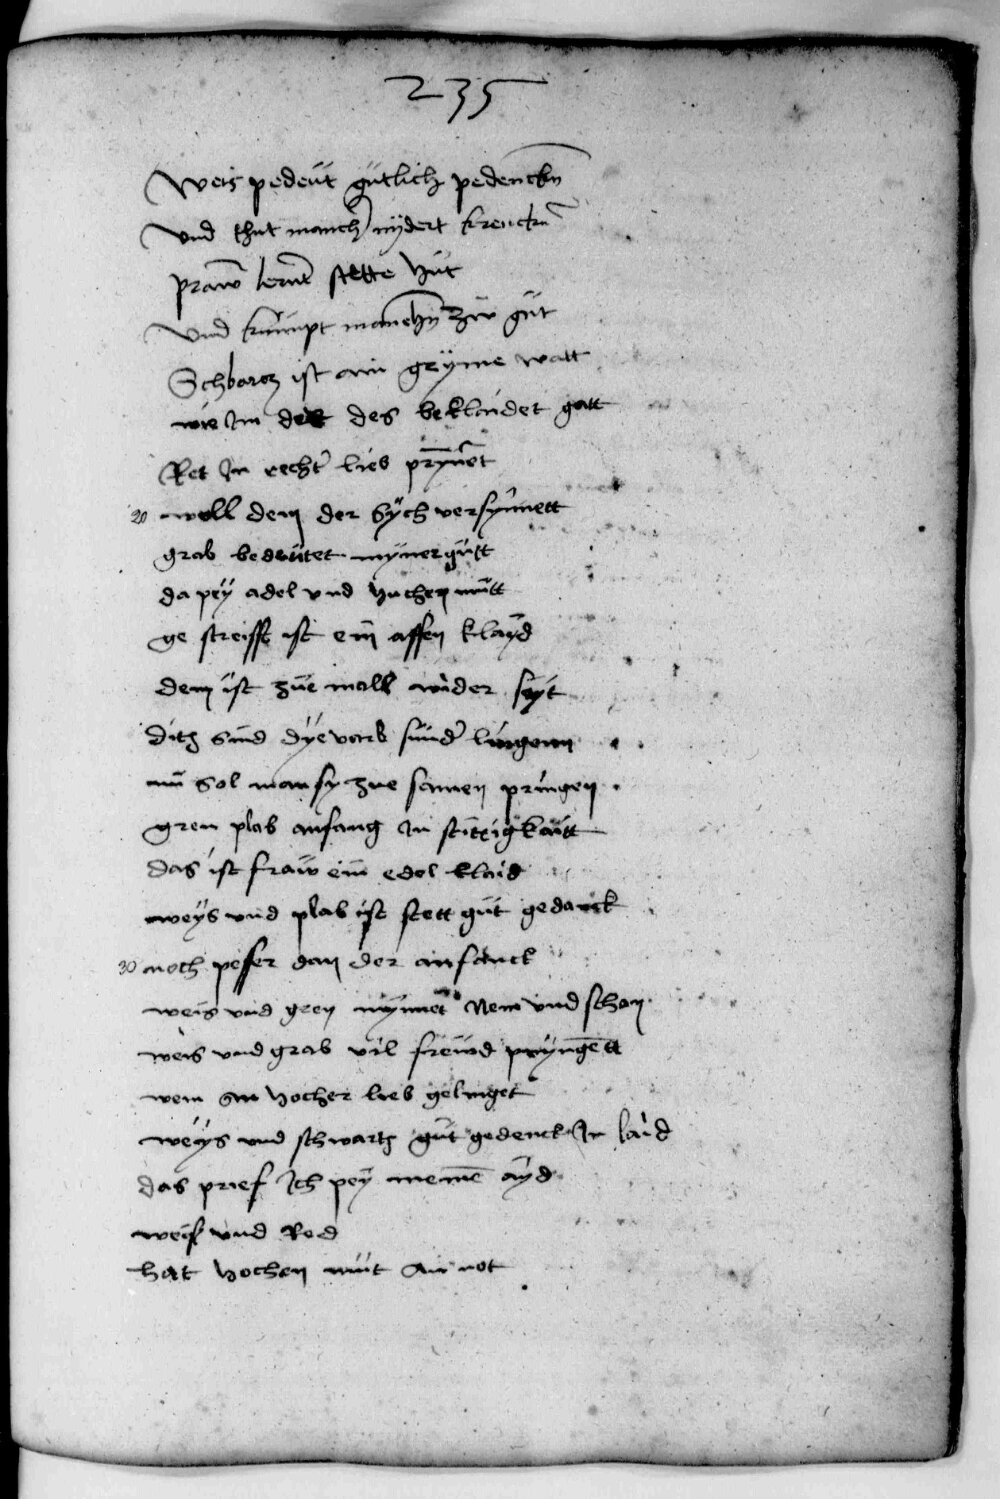 235
Weis pedeut gütlich pedenckn
Vnd thut manchn nydert krenckn
praw lernt stette hüt
Vnd kumpt manchn zw güt
Schbarcz ist ain grÿme watt
wie Im der des beklaidet gatt
Rot In recht lieb prynnet
20 woll dem der sÿch versÿnnett
grab bedeütet mynner gütt
da peÿ adel vnd hochen mütt
ge streifft ist ein affen klayd
dem ist zue mall wider seÿt
dicz sind dÿe varb sunder lingenn
nu sol man sy zue samen pringen
gren plab anfang In stittigkaitt
das ist fraw ein edel klaid
weÿs vnd plab ist stett güt gedanck
30 noch pesser dan der anfanck
weis vnd gren mynnet New vnd schon
weis vnd grab vil freud pryngett
wem an hocher lieb gelinget
weÿs vnd schwartz güt gedenck In laid
das prief Ich peÿ meine aÿd
weiß vnd Rod
hat hochen müt an not